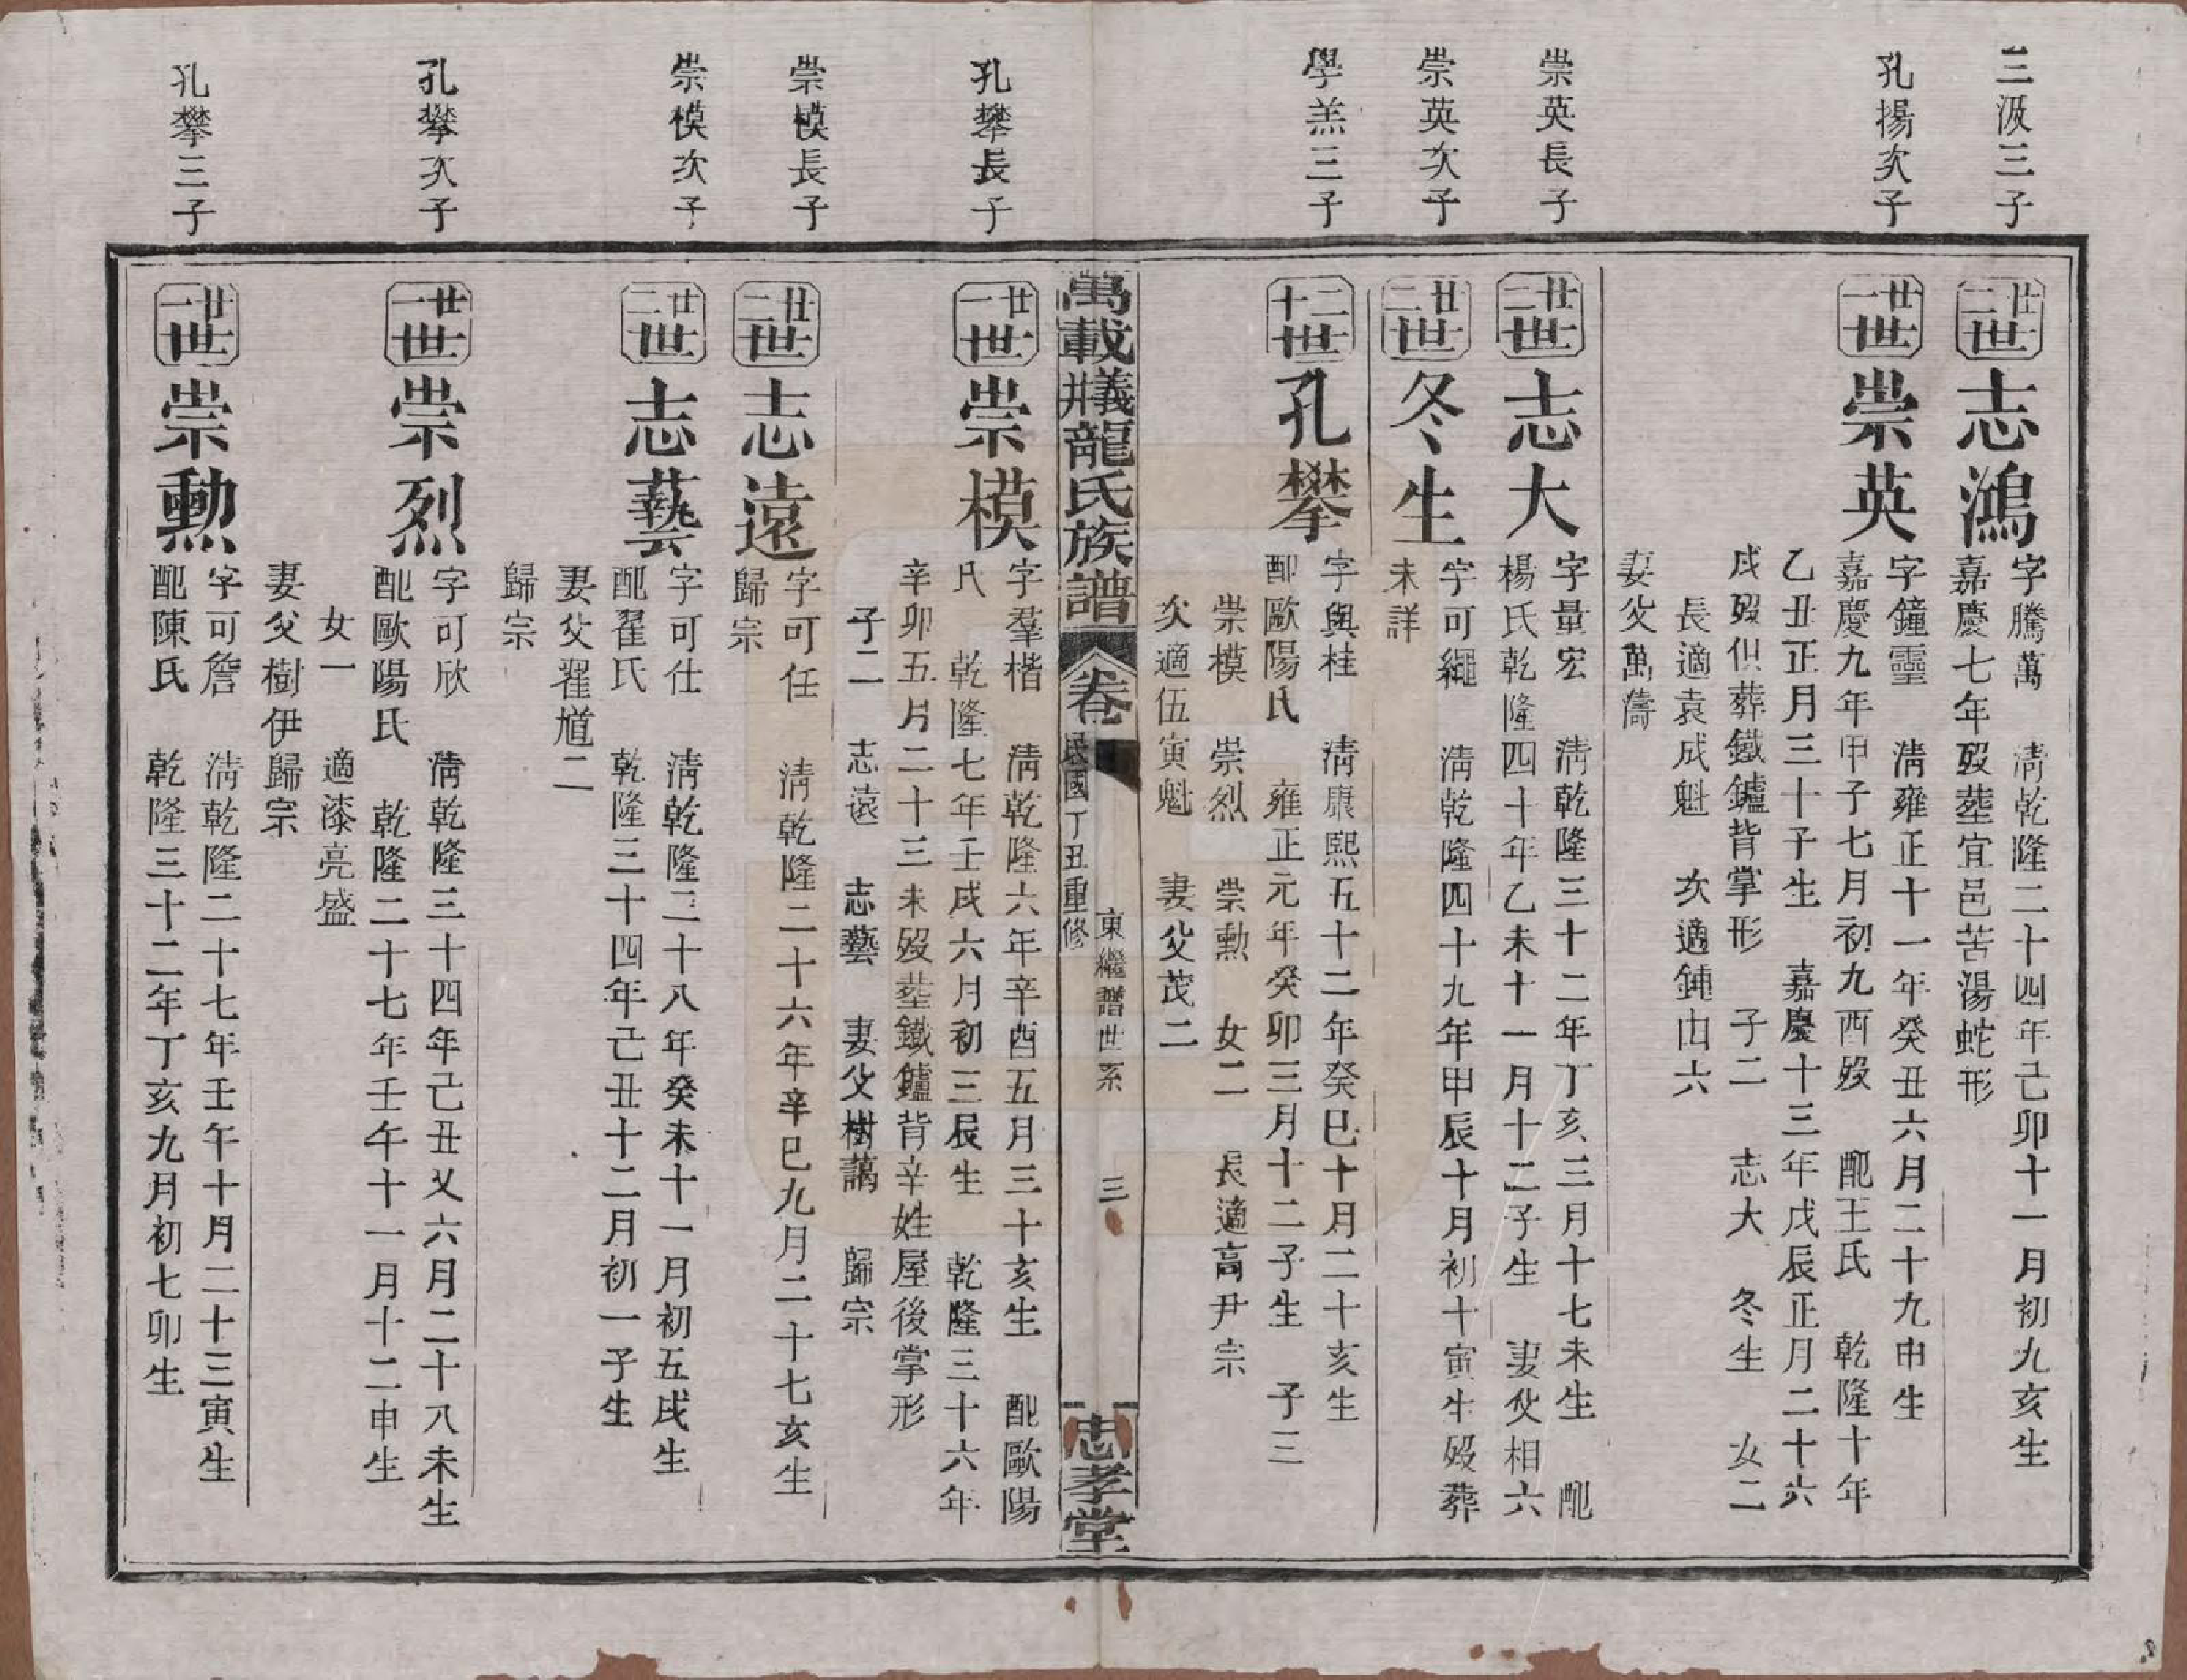 三汲三子
廿二世 志鴻
字騰萬 淸乾隆二十四年己卯十一月初九亥生
嘉慶七年歿塟宜邑苦湯蛇形
孔揚次子
廿一世 崇英
字鐘靈 淸雍正十一年癸丑六月二十九申生
嘉慶九年甲子七月初九酉歿 配王氏 乾隆十年
乙丑正月三十子生 嘉慶十三年戊辰正月二十六
戌歿俱葬鐵鑪背掌形 子二 志大 冬生 女二
長適袁成魁 次適鍾由六
妻父萬濤
崇英長子
廿二世 志大
字量宏 淸乾隆三十二年丁亥三月十七未生 配
楊氏乾隆四十年乙未十一月十二子生 妻父相六
崇英次子
廿二世 冬生
字可繩 淸乾隆四十九年甲辰十月初十寅生歿葬
未詳
學羔三子
二十世 孔攀
字與桂 淸康熙五十二年癸巳十月二十亥生
配歐陽氏 雍正元年癸卯三月十二子生 子三
崇模 崇烈 崇勳 女二 長適高尹宗
次適伍寅魁 妻父茂二
萬載井義龍氏族譜 卷一 民國丁丑重修 東繼譜世系 三 忠孝堂
孔攀長子
廿一世 崇模
字羣楷 淸乾隆六年辛酉五月三十亥生 配歐陽
氏 乾隆七年壬戌六月初三辰生 乾隆三十六年
辛卯五月二十三未歿塟鐵鑪背辛姓屋後掌形
子二 志遠 志藝 妻父樹藹 歸宗
崇模長子
廿二世 志遠
字可任 淸乾隆二十六年辛巳九月二十七亥生
歸宗
崇模次子
廿二世 志藝
字可仕 淸乾隆二十八年癸未十一月初五戌生
配翟氏 乾隆三十四年己丑十二月初一子生
妻父翟馗二
歸宗
孔攀次子
廿一世 崇烈
字可欣 淸乾隆三十四年己丑乂六月二十八未生
配歐陽氏 乾隆二十七年壬午十一月十二申生
女一 適漆亮盛
妻父樹伊歸宗
孔攀三子
廿一世 崇勳
字可詹 淸乾隆二十七年壬午十月二十三寅生
配陳氏 乾隆三十二年丁亥九月初七卯生